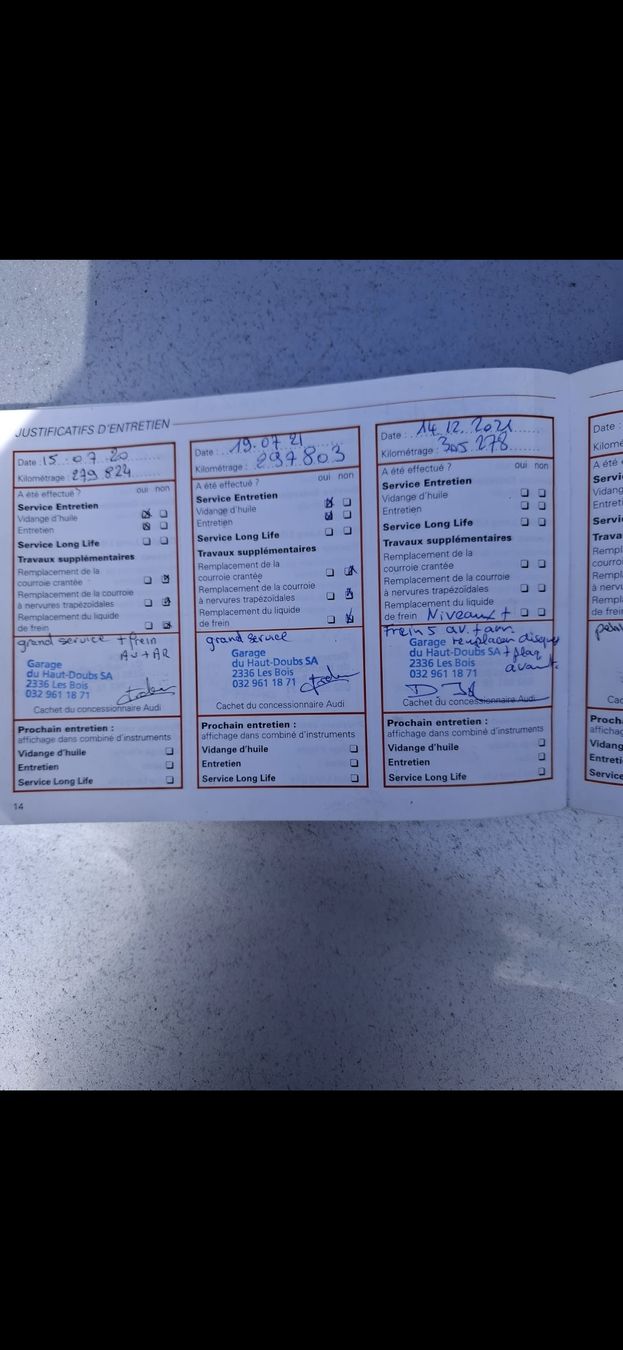 JUSTIFICATIFS D'ENTRETIEN
Date : 15.07.20
Kilométrage : 279 824
A été effectué ? oui non
Service Entretien
Vidange d'huile
Entretien
Service Long Life
Travaux supplémentaires
Remplacement de la
courroie crantée
Remplacement de la courroie
à nervures trapézoïdales
Remplacement du liquide
de frein
grand service + frein
AV + AR
Garage
du Haut-Doubs SA
2336 Les Bois
032 961 18 71
Cachet du concessionnaire Audi
Prochain entretien :
affichage dans combiné d'instruments
Vidange d'huile
Entretien
Service Long Life
14
Date : 19.07 21
Kilométrage : 297803
A été effectué ? oui non
Service Entretien
Vidange d'huile
Entretien
Service Long Life
Travaux supplémentaires
Remplacement de la
courroie crantée
Remplacement de la courroie
à nervures trapézoïdales
Remplacement du liquide
de frein
grand service
Garage
du Haut-Doubs SA
2336 Les Bois
032 961 18 71
Cachet du concessionnaire Audi
Prochain entretien :
affichage dans combiné d'instruments
Vidange d'huile
Entretien
Service Long Life
Date : 14.12.2021
Kilométrage : 305 278
A été effectué ? oui non
Service Entretien
Vidange d'huile
Entretien
Service Long Life
Travaux supplémentaires
Remplacement de la
courroie crantée
Remplacement de la courroie
à nervures trapézoïdales
Remplacement du liquide
de frein Niveaux +
Freins av. + arr.
Garage remplacem disques
du Haut-Doubs SA + plaq
2336 Les Bois avant.
032 961 18 71
Cachet du concessionnaire Audi
Prochain entretien :
affichage dans combiné d'instruments
Vidange d'huile
Entretien
Service Long Life
Date :